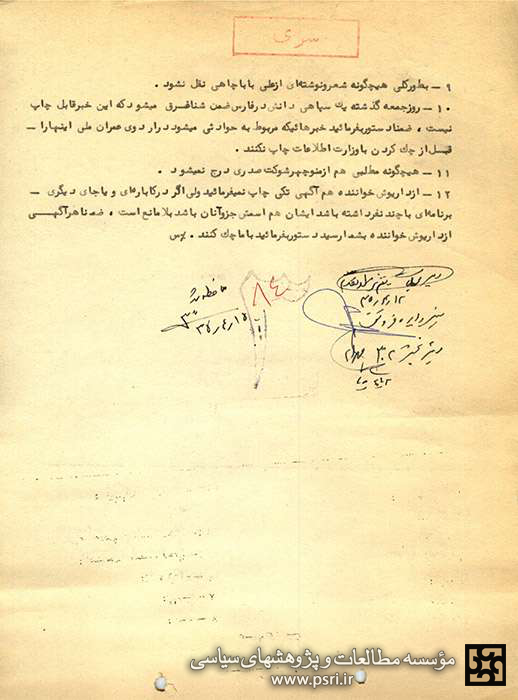 سری
۹ ـ بطورکلی هیچگونه شعرونوشته‌ای ازعلی باباچاهی نقل نشود .
۱۰ ـ روزجمعه گذشته یك سپاهی دانش درفارس ضمن شناغرق میشود که این خبرقابل چاپ
نیست ، ضمناد ستوربفرمائید خبرهائیکه مربوط به حوادثی میشود درارد وی عمران ملی اینهارا ـ
قبل از چك کردن باوزارت اطلاعات چاپ نکنند .
۱۱ ـ هیچگونه مطلبی هم ازمنوچهرشوکت صدری درج نمیشود .
۱۲ ـ ازداریوش خواننده هم آگهی تکی چاپ نمیفرمائید ولی اگر درکاباره‌ای ویاجای دیگری ـ
برنامه‌ای باچند نفرد اشته باشد ایشان هم اسمش جزوآنان باشد بلامانع است ، ضمناهرآگهی
ازداریوش خواننده بشمارسید د ستوربفرمائید باماچك کنند .
۸۴
مؤسسه مطالعات و پژوهشهای سیاسی
www.psri.ir